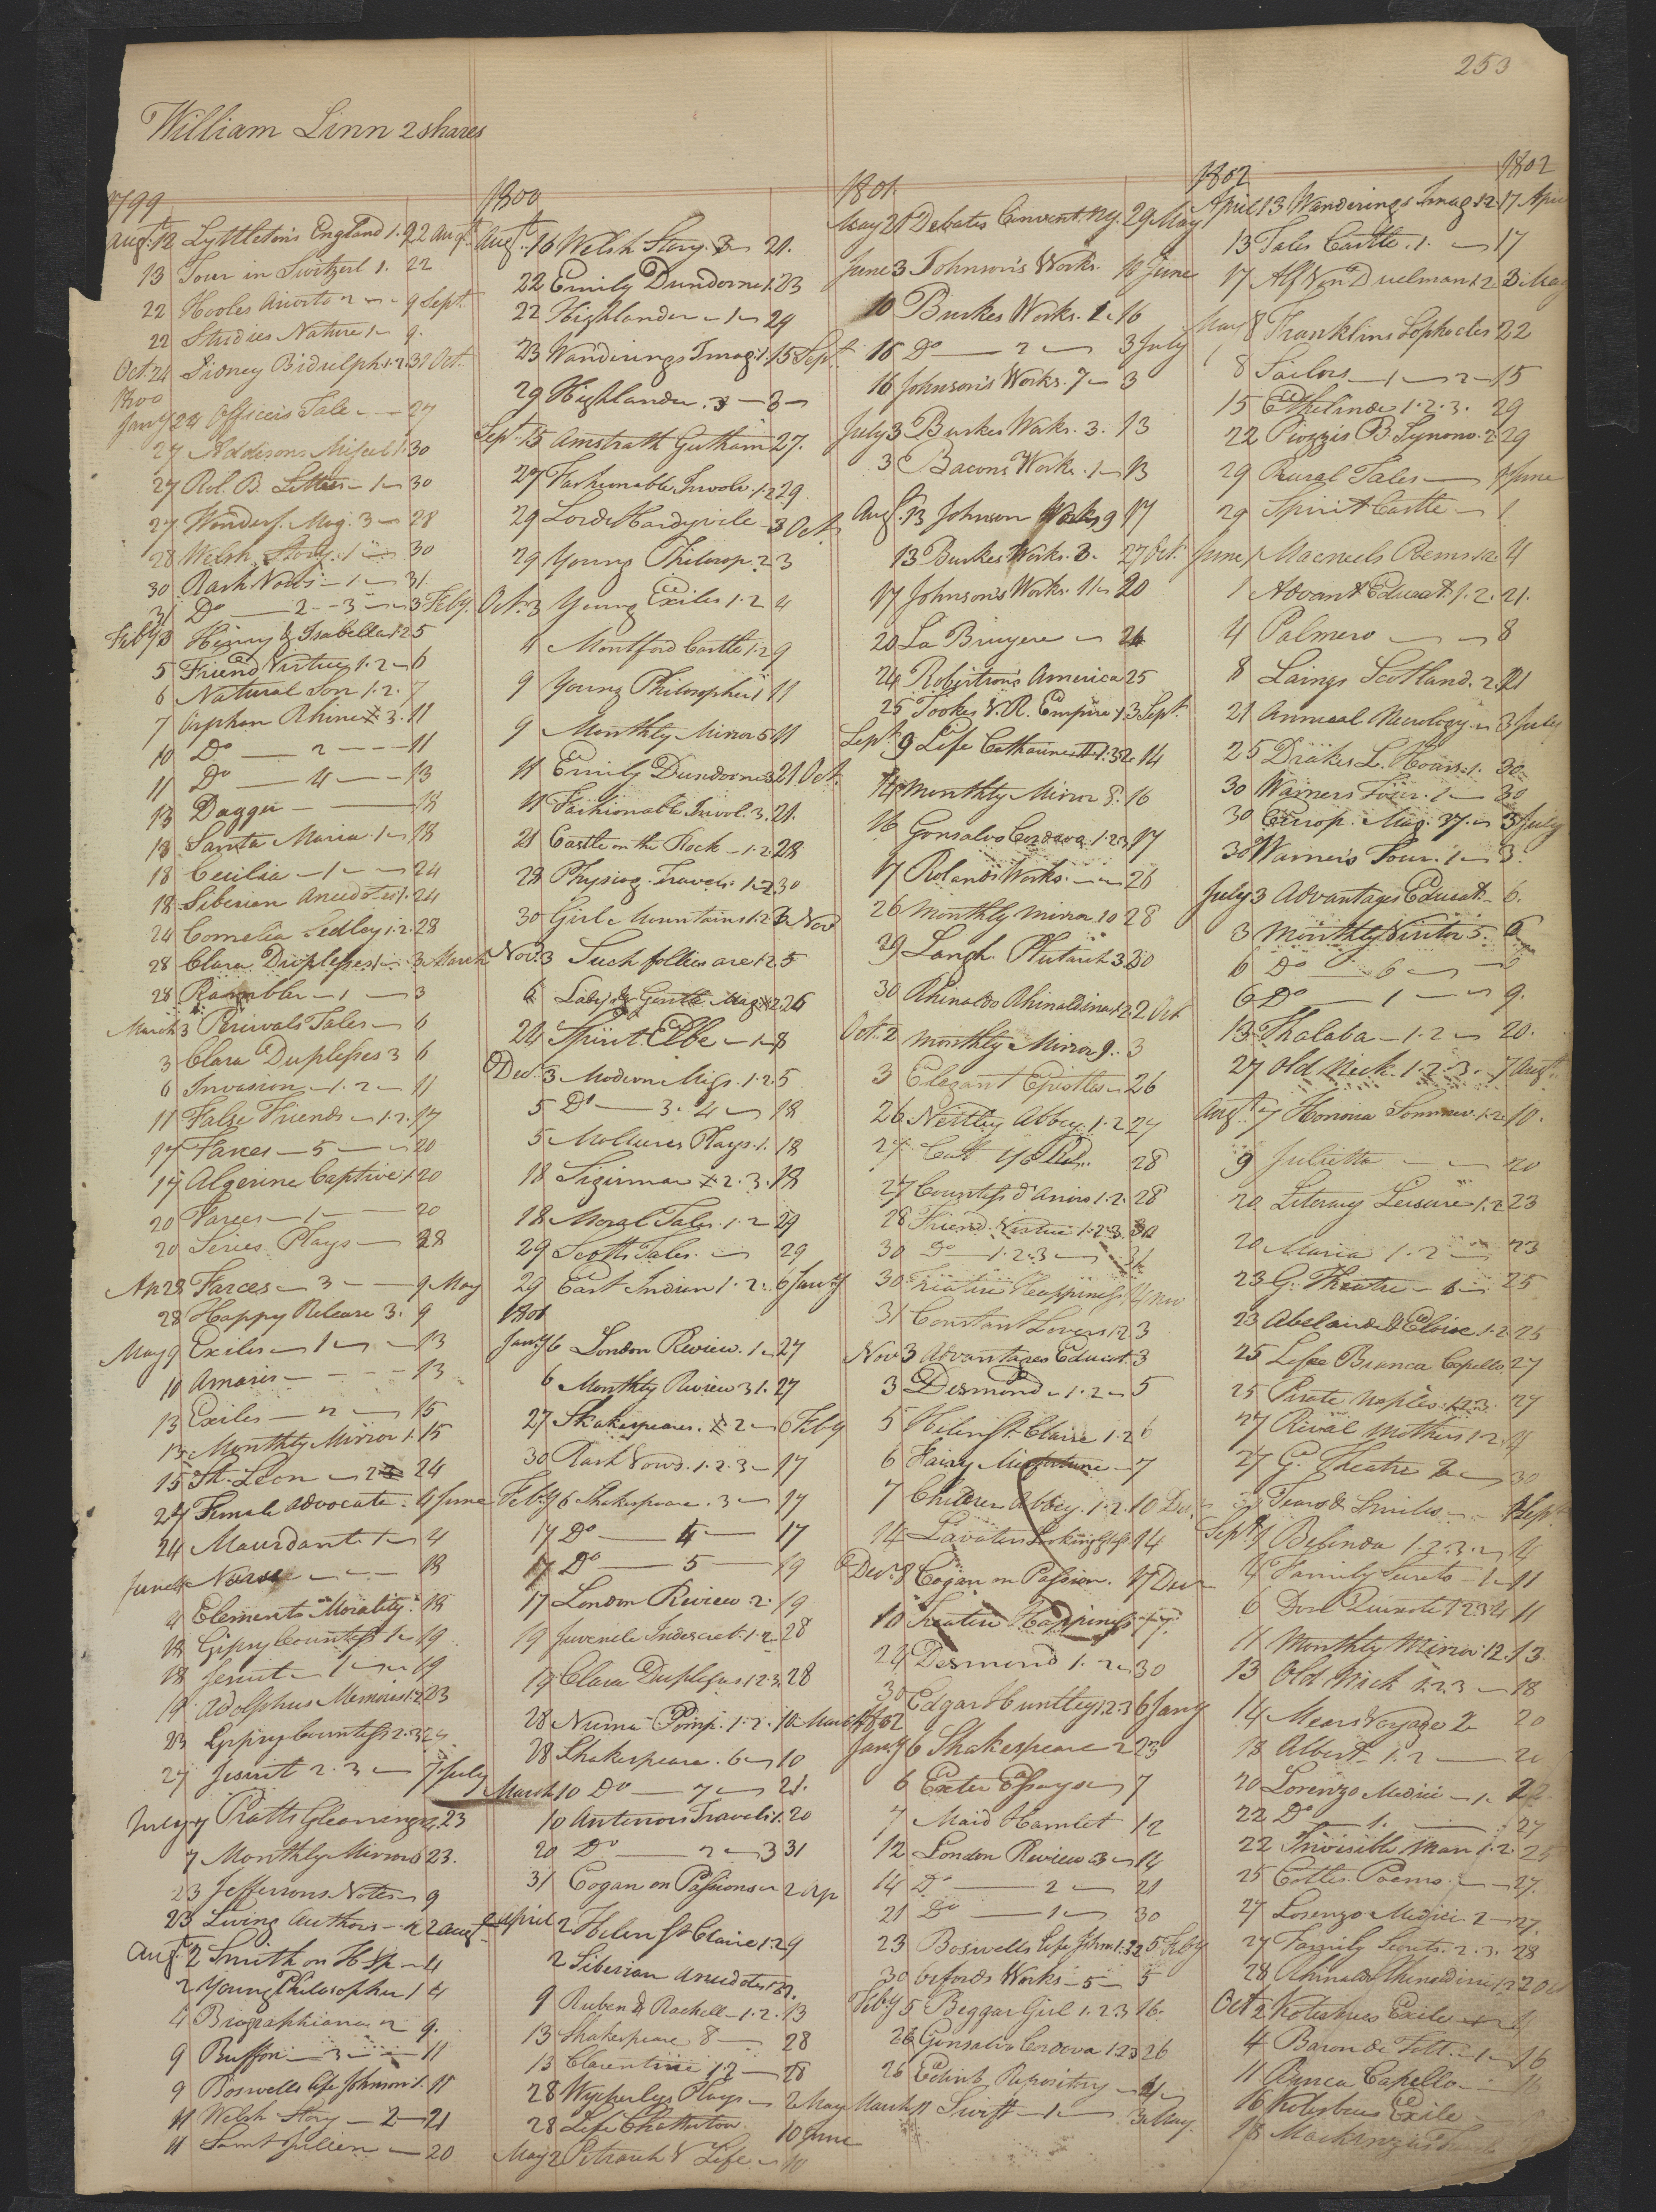 253
William Linn 2 shares
1799
Augt. 12 Lyttleton's England 1. 2 22 Augt.
13 Tour in Switzerl 1. 22
22 Hooles Ariosto 2 9 Sept.
22 Studies Nature 1 9.
Oct. 24 Sidney Bidulph 1.2 31 Oct.
1800
Jany 24 Officers Tale 27
27 Addisons Miscel 1. 30
27 Rol. B. Letters 1 30
27 Wonderf. Mag. 3 28
28 Welsh Story 1 30
30 Rash Vows 1 31.
31 Do 2 3 3 Feby.
Feby 3 Henry & Isabella 1.2 5
5 Friend Virtue 1.2 6
6 Natural Son 1.2. 7
7 Orphan Rhine 3. 11
10 Do 2 11
11 Do 4 13
13 Dagger 18
13 Santa Maria 1 18
18 Cecilia 1 24
18 Siberian Anecdotes 1. 24
24 Cornelia Sedley 1.2. 28
28 Clara Duplesses 1 3 March
28 Rambler 1 3
March 3 Percivals Tales 6
3 Clara Duplesses 3 6
6 Invasion 1.2 11
11 False Friends 1.2. 17
17 Farces 5 20
17 Algerine Captive 1 20
20 Farces 1 20
20 Series Plays 28
Ap 28 Farces 3 9 May
28 Happy Release 3. 9
May 9 Exiles 1 13
10 Amaris 13
13 Exiles 2 15
13 Monthly Mirror 1. 15
15 St. Leon 2 24
24 Female Advocate 4 June
24 Maurdant 1 4
June 4 Norse 18
4 Elements Morality. 18
18 Gipsy Countess 1 19
18 Jesuit 1 19
19 Adolphus Memoirs 1.2 23
23 Gipsy Countess 2.3 27
27 Jesuit 2.3 7 July
July 7 Pratts Gleanings 23
7 Monthly Mirror 6 23.
23 Jeffersons Notes 9
23 Living Authors 2 Augt.
Augt. 2 Smith on H Sp 4
2 Young Philosopher 1 4
4 Biographiana 2 9.
9 Buffon 3 11
9 Boswells Life Johnson 1. 11
11 Welsh Story 2 21
11 Saint Julien 20
1800
Augt. 16 Welsh Story. 3 21.
22 Emily Dundorne 1. 23
22 Highlander 1 24
23 Wanderings Imag: 1. 15 Sept.
29 Highlander. 3 3
Sept. 15 Amstrath Gutham 27.
27 Fashionable Involv. 1.2 29
29 Lord Hardyvile 3 Oct.
29 Young Philosop. 2 3
Oct. 3 Young Exiles 1.2 4
4 Montford Castle 1.2 9
9 Young Philosopher 1 11
9 Monthly Mirror 5 11
11 Emily Dundorne 3 21 Oct.
11 Fashionable Invol. 3. 21.
21 Castle on the Rock 1.2 28
28 Physiog. Travels 1.2 30
30 Girl Mountains 1.2 3 Nov
Nov. 3 Such follies are 1.2 5
6 Lady's & Gentle Mag 2 26
24 Spirit Elbe 1 8
Dec. 3 Modern Miss. 1.2. 5
5 Do 3. 4 18
5 Molieres Plays. 1. 18
18 Sigismar 2. 3. 18
18 Moral Tales 1.2 29
29 Scotts Tales. 29
29 East Indian 1.2. 6 Jany
1801
Jany 6 London Review. 1 27
6 Monthly Review 31. 27
27 Shakespeares. 2 6 Feby
30 Rash Vows. 1.2.3 17
Feby 6 Shakespeare. 3 17
17 Do 4 17
17 Do 5 19
17 London Review 2. 19
19 Juvenile Indiscret. 1.2 28
19 Clara Duplessis 1.2.3. 28
28 Numa Pomp. 1.2. 10 March
28 Shakespeare. 6 10
March 10 Do 7 21.
10 Antenors Travels 1. 20
20 Do 2 3 31
31 Cogan on Passions 2 Ap
April 2 Helen St Claire 1.2 9
2 Siberian Anecdotes 1.2
9 Ruben & Rachell 1.2. 13
13 Shakespeare. 8 28
13 Clarentine 1.2 28
28 Wycherleys Plays 2 May
28 Life Chatterton 10 June
May 2 Petrarch's Life 10
1801
May 21 Debates Convent. Ny. 29 May
June 3 Johnson's Works. 10 June
10 Burkes Works. 1. 16
16 Do 2 3 July
16 Johnson's Works. 7 3
July 3 Burkes Works. 3. 13
3 Bacons Works. 1 13
Augt. 13 Johnson Works 9 17
13 Burkes Works. 3. 27 Oct.
17 Johnson's Works. 11 20
20 La Bruyere 24
24 Robertson's America 25
25 Tookes V. R. Empire 1 3 Sept.
Sept. 3 Life Catharine II 1.3.2. 14
14 Monthly Mirror 8. 16
16 Gonsalvo Cordova 1.2.3 17
17 Rolands Works. 26
26 Monthly Mirror 10 28
29 Langh. Plutarch 3 30
30 Rhinaldo Rhinaldina 1.2 2 Oct
Oct. 2 Monthly Mirror 9. 3
3 Elegant Epistles 26
26 Nettley Abbey 1.2 27
27 28
27 Countess d'Anois 1.2. 28
28 Friend Virtue 1.2.3. 30
30 Do 1.2.3 31
30 Treatise Happiness 4 Nov
31 Constant Lovers 1.2 3
Nov 3 Advantages Educat. 3
3 Desmond 1.2 5
5 Helen St. Claire 1.2 6
6 Fairy Misfortune 7
7 Children Abbey. 1.2. 10 Dec.
14 Lavaters Looking Glass 14
Dec. 8 Cogan on Passion. 17 Dec
10 Treatise Happiness 17.
24 Desmond 1.2 30
30 Edgar Huntley 1.2.3 6 Jany
1802
Jany 6 Shakespeare 2 23
6 Exeter Essays 7
7 Maid Hamlet 12
12 London Review 3 14
14 Do 2 21
21 Do 1 30
23 Boswells Life John 1.3.2 5 Feby
30 Orfords Works 5 5
Feby 5 Beggar Girl 1.2.3 16.
26 Gonsalvo Cordova 1.2.3 26
26 Edinb Repository 4
March 11 Swift 1 3 May.
1802 1802
April 13 Wanderings Imag 1.2 17 Apri
13 Tales Castle. 1. 17
17 Alf Von Duelman 1.2 3 May
May 8 Franklins Sophocles 22
8 Sailors 1 2 15
15 Ethelinde 1.2.3. 29
22 Piozzis B. Synono. 2 29
29 Rural Tales 1 June
29 Spirit Castle 1
June 1 Macneels Poems 1.2. 4
1 Advant Educat 1.2. 21.
4 Palmero 8
8 Laings Scotland. 2. 21
21 Annual Necrology 3 July
25 Drakes L. Hours. 1. 30
30 Warners Tour. 1 30
30 Europ. Mag. 37. 3 July
30 Warners Tour. 1 3.
July 3 Advantages Educat 6.
3 Monthly Visitor 5. 6
6 Do 6
6 Do 1 9.
13 Thalaba 1.2 20.
27 Old Nick. 1.2.3. 7 Augt.
Augt. 7 Honoria Sommer. 1.2. 10.
9 Julietta 20
20 Literary Leisure 1.2 23
20 Maria 1.2 23
23 G. Theatre 1 25
23 Abelard & Eloise 1.2 25
25 Lofee Bianca Capello 27
25 Pirate Naples 1.2.3. 27
27 Rival Mothers 1.2.
27 G. Theatre 2 30
Tears & Smiles Sept
Sept. 1 Belinda 1.2.3. 4
4 Family Secrets 1 11
6 Don Quixote 1.2.3.4 11
11 Monthly Mirror 12. 13.
13 Old Nick 1.2.3 18
14 Mears Voyage 2 20
18 Albert 1.2 20
20 Lorenzo Medici 1. 22
22 Do 1. 27
22 Invisible Man 1.2. 25
25 Cottles Poems. 27.
27 Lorenzo Medici 2 27.
27 Family Secrets. 2.3. 28
28 Rhinaldo Rhinaldini 1.2 2 Oct
Oct 2 Kotzebues Exile 4
4 Baron de Tott. 1 16
11 Bianca Capello 16
16 Kotzebues Exile
18 Mackenzies